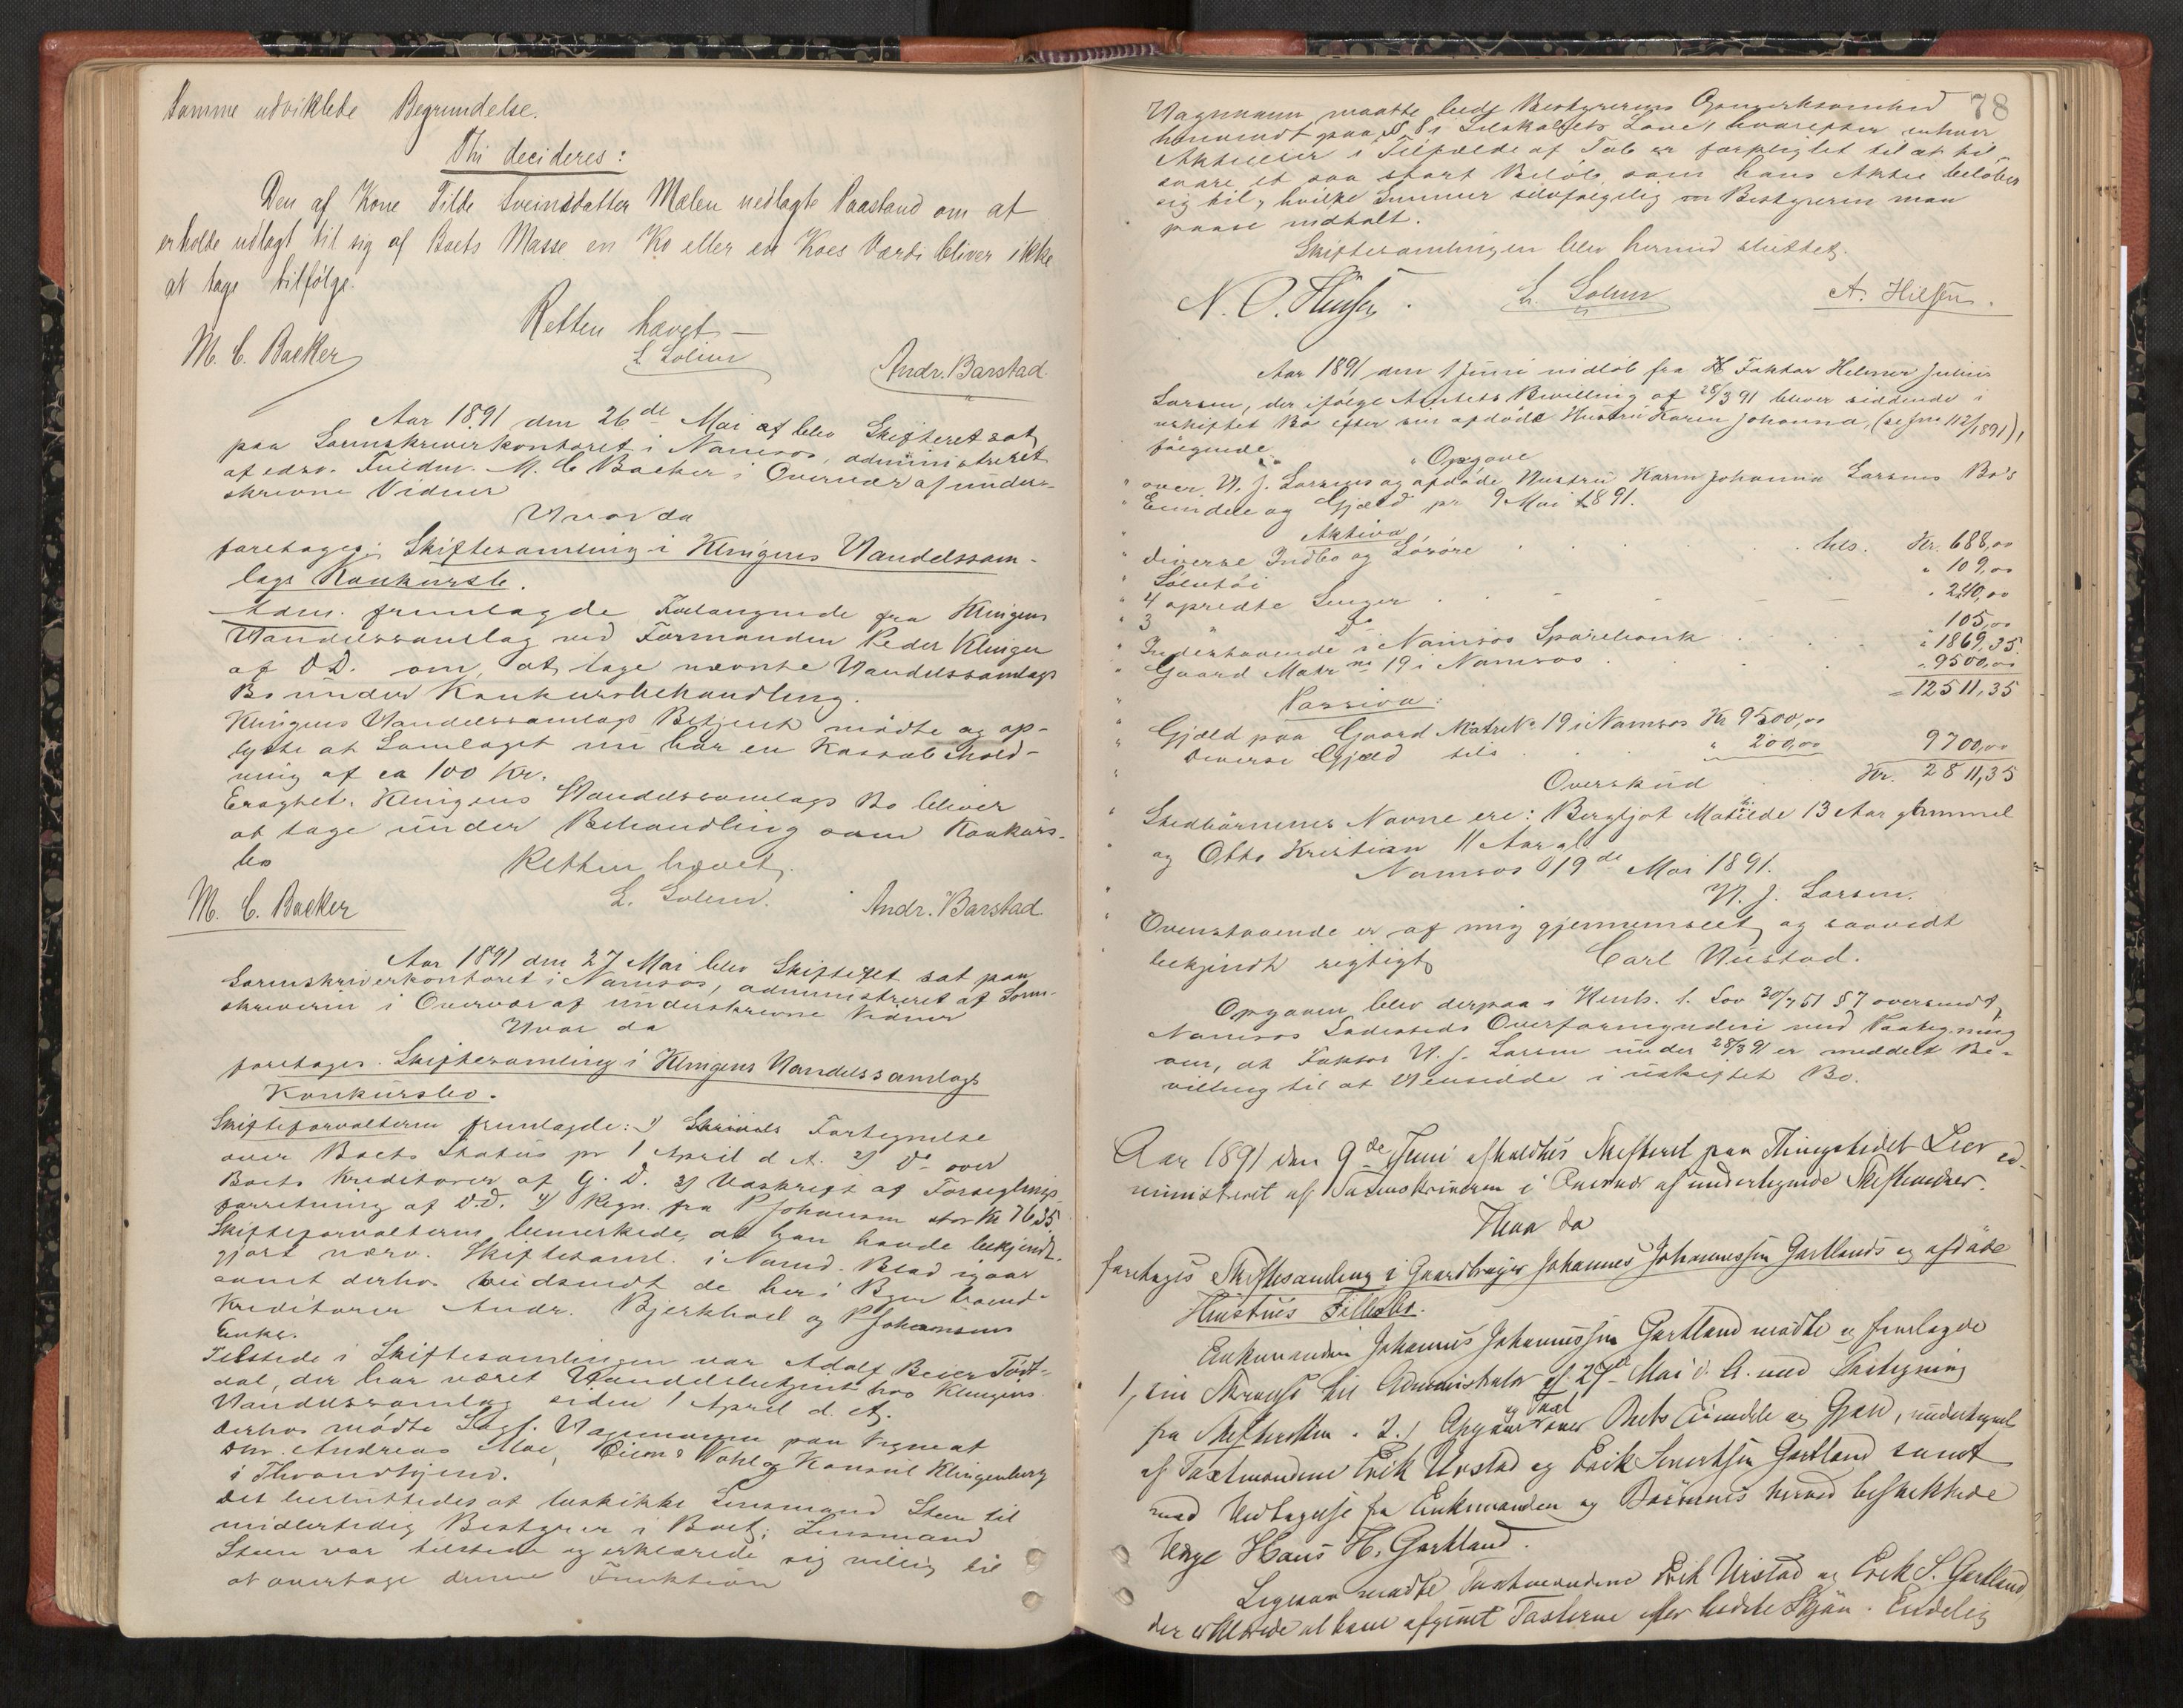 Samme udviklede Begrundelse.
Thi decideres:
Den af Kone Tilde Sveinsdatter Mælen nedlagte Paastand om at
erholde udlagt til sig af Boets Masse en Ko eller en Koes Værdi bliver ikke
at tage tilfølge.
Retten hævet
M. C. Backer
L. Solem
Andr. Barstad
Aar 1891 den 26de Mai af blev Skifteret sat
paa Sorenskriverkontoret i Namsos, administreret
af edsv. Fuldm. M. C. Backer i Overvær af under-
skrevne Vidner
Hvorda
foretages: Skiftesamling i Klingens Handelssam-
lags Konkursbo.
Adm. fremlagde Forlangende fra Klingens
Handelssamlag ved Formanden Peder Klingen
af D.D. om, at tage nævnte Handelssamlags
Bo under Konkursbehandling.
Klingens Handelssamlags Betjent mødte og op-
lyste at Samlaget nu har en Kassabehold-
ning af ca 100 Kr.
Eragtet. Klingens Handelssamlags Bo bliver
at tage under Behandling som Konkurs-
bo
Retten hævet
M. C. Backer
L. Solem.
Andr. Barstad
Aar 1891 den 27 Mai blev Skifteret sat paa
Sorenskriverkontoret i Namsos, administreret af Soren-
skriveren i Overvær af underskrevne Vidner
Hvor da
foretages. Skiftesamling i Klingens Handelssamlags
Konkursbo.
Skifteforvalteren fremlagde: 1) Fortegnelse
over Boets Status pr 1 April d. A. 2) Do over
Boets Kreditorer af G. D. 3) Udskrift af Forseglings-
forretning af D.D. 4) Regn. fra P Johansen stor Kr 76,35
Skifteforvalteren bemerkede, at han havde bekjendt-
gjort nærv. Skiftesaml. i Namd. Blad igaar
samt derhos tilsendt de her i Byen boend-
Kreditorer Andr. Bjerkhoel og P Johansens
Enke.
Tilstede i Skiftesamlingen var Adolf Beier
dal, der har været Handelsbetjent hos Klingens
Handelssamlag siden 1 April d. A.
Derhos mødte Sagf. Hagemann paa Vegne af
Andreas Moe, Wahl og Konsul Klingenberg
i Throndhjem.
Det besluttedes at beskikke Lensmand Steen til
midlertidig Bestyrer i Boet; Lensmand
Steen var tilstede og erklærede sig villig til
at overtage denne Funktion
78
Hagemann maatte lede Bestyrerens Opmerksomhed
henvendt paa § 8 i Selskabets Love, hvorefter enhver
Aktieeier i Tilfælde af Tab er forpligtet til at til-
svare et saa stort Beløb, som hans Aktie beløber
sig til, hvilke Summer selvfølgelig Bestyreren maa
paase indtalt.
Skiftesamlingen blev hermed sluttet.
L. Solem
A. Hilsen.
Aar 1891 den 1 Juni indløb fra Faktor Helmer Julius
Larsen, der ifølge Amtets Bevilling af 28/3 91 bliver siddende i
uskiftet Bo efter sin afdøde Hustru Karen Johanna, (se jnr 112/1891),
følgende
"Opgave
over H. J. Larsens og afdøde Hustru Karen Johanna Larsens Bo's
Eiendele og Gjæld pr 9 Mai 1891.
Aktiva
diverse Indbo og Løsøre . . . . tils. Kr. 688,00
Sølvtøi " 109,00
4 opredte Senger . . . " 240,00
3 Do 105,00
Indestaaende i Namsos Sparebank " 1869,35
Gaard Matr No 19 i Namsos . . . " 9500,00
= 12511,35
Passiva:
Gjæld paa Gaard Matr No 19 i Namsos Kr 9500,00
Diverse Gjæld tils " 200,00 9700,00
Overskud Kr. 2811,35
Stedbørnenes Navne ere: Bergljot Matilde 13 Aar gammel
og Otto Kristian 11 Aar gl.
Namsos 19de Mai 1891.
H. J. Larsen.
Ovenstaaende er af mig gjennemseet og saavidt
bekjendt rigtigt
Carl Hustad.
Opgaven blev derpaa i Henh. t. Lov 30/7 51 § 7 oversendt
Namsos Ladesteds Overformynderi med Paategning
om, at Faktor H. J. Larsen under 28/3 91 er meddelt Be-
villing til at hensidde i uskiftet Bo.
Aar 1891 den 9de Juni afholdtes Skifteret paa Thingstedet Lier ad-
ministreret af Sorenskriveren i Overvær af undertegnede Skiftevidner.
Hvor da
foretages Skiftesamling i Gaardbruger Johannes Johannessen Gartlands og afdøde
Hustrues Fællesbo.
Enkemanden Johannes Johannessen Gartland mødte og fremlagde
1, sin Skrivelse til Administrator af 27de Mai d. A. med Paategning
fra Skifteretten. 2.) Opgave og Taxt over Boets Eiendele og Gjæld, undertegnet
af Taxtmændene Erik Urstad og Erik Sivertsen Gartland samt
med Vedtagelse fra Enkemanden og Børnenes herved beskikkede
Verge Hans H. Gartland.
Ligesaa mødte Taxtmændene Erik Urstad og Erik S. Gartland,
der erklærede at have afgivet Taxterne efter bedste Skjøn. Endelig